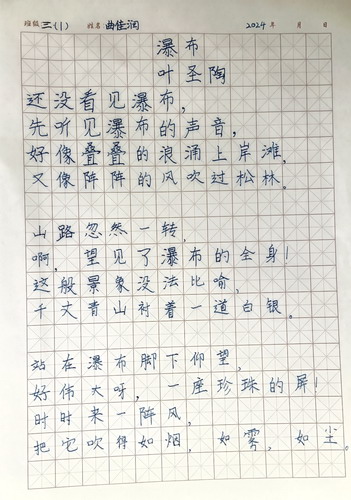 班级 三(1) 姓名 曲佳润 2024年 月 日
瀑布
叶圣陶
还没看见瀑布,
先听见瀑布的声音,
好像叠叠的浪涌上岸滩,
又像阵阵的风吹过松林。
山路忽然一转,
啊, 望见了瀑布的全身!
这般景象没法比喻,
千丈青山衬着一道白银。
站在瀑布脚下仰望,
好伟大呀, 一座珍珠的屏!
时时来一阵风,
把它吹得如烟, 如雾, 如尘。